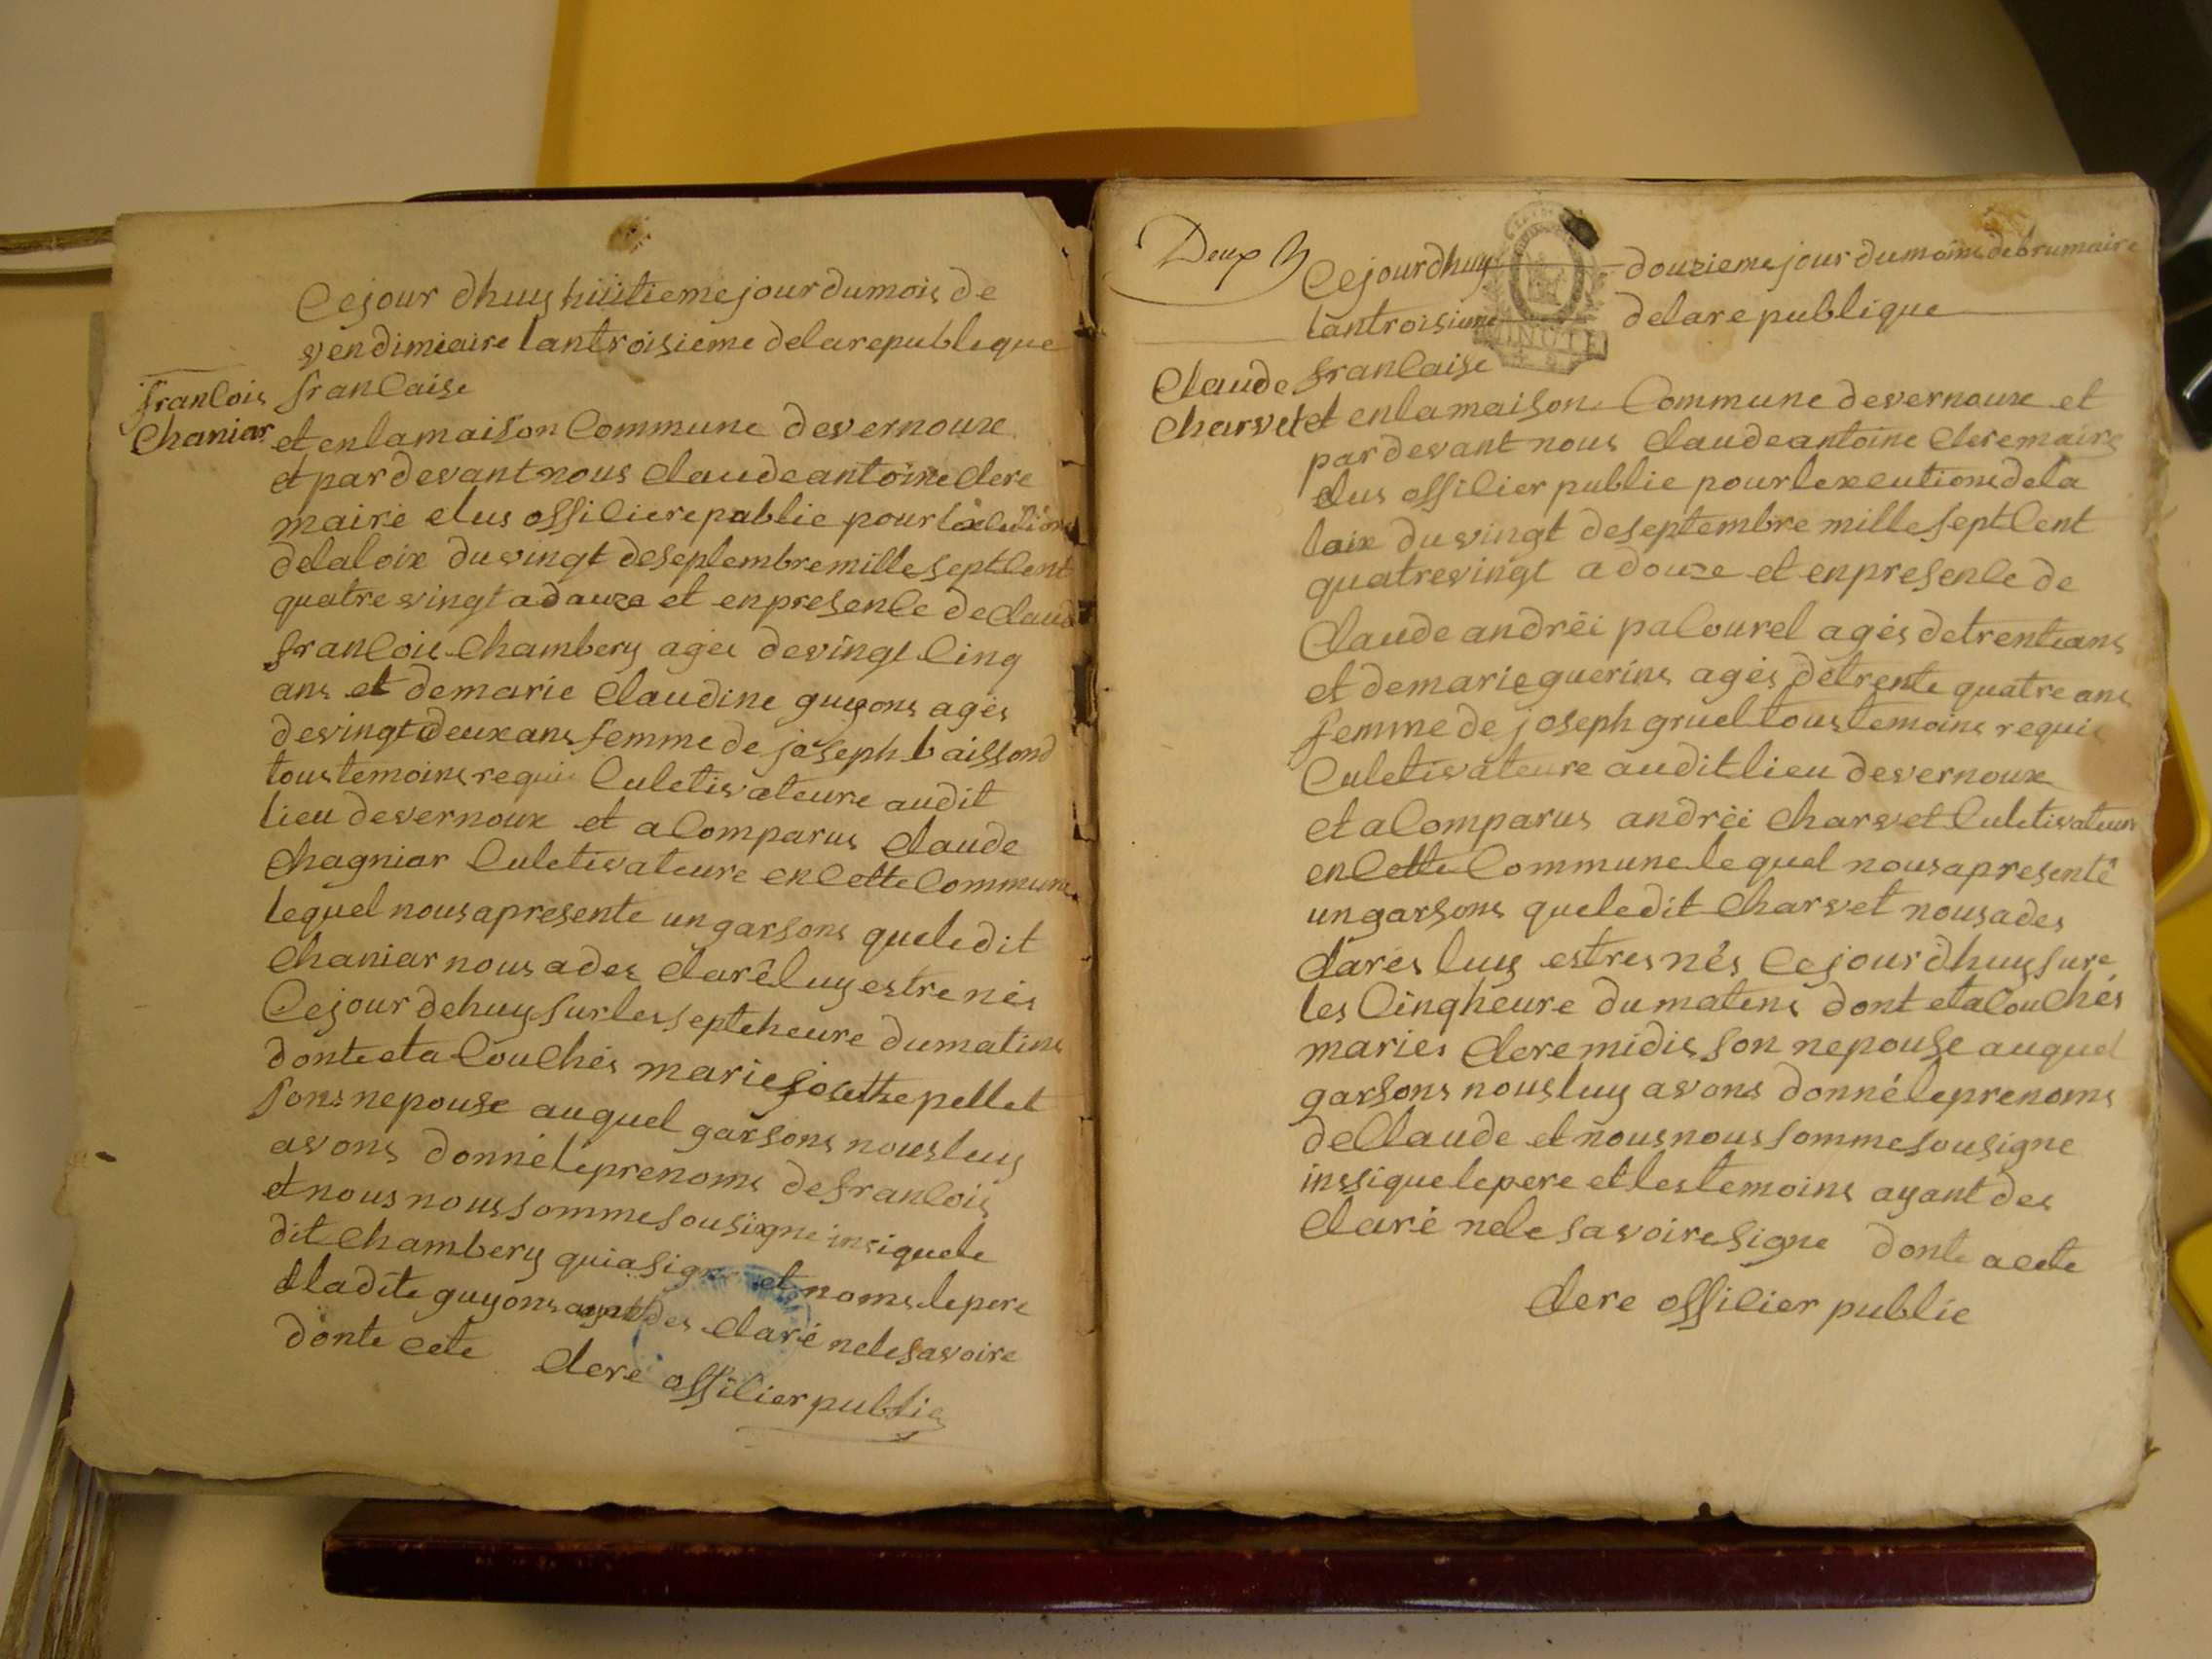 Cejour dhuy hüitieme jour dumois de
vendimiaire lantroisieme delarepubleque
franCois
franCaise
Chaniar
et enlamaison Commune devernoux
et pardevantnous Claudeantoine Clere
maire elus offiCiere publie pour
delaloix duvingt deseptembre mille septCent
quatre vingt adouze et enpresenCe de Claude
franCois Chambery agés devingt Cinq
ans et demarie Claudine guyons agés
devingtdeuxans femme de joseph baissond
toustemoins requis Culetivateure audit
lieu devernoux et aComparus Claude
Chagniar Culetivateure enCette Commune
lequel nousapresente ungarsons queledit
Chaniar nousades Clarêluyestre nés
Cejour dehuy surles septeheure dumatins
donteeta CouChés mariejosette pellet
sons nepouse auquel garsons nousluy
avons donnéleprenoms defranCois
et nousnoussommesousigne insiquele
dit Chambery quiasigne et noms lepere
et ladite guyons ayantdes Claré nelesavoire
donte Cete
Clere offiCier publie
Deux
Cejourdhuy douziemejour dumoins debrumaire
lantroisieme delarepublique
MINUTE
Claude
franCaise
Charvet
et enlamaison Commune devernoux et
pardevant nous Claudeantoine Cleremaire
elus offiCier publie pourlexeCutions dela
loix duvingt deseptembre mille septCent
quatrevingt adouze et enpresenCe de
Claude andréi paCourel agés detrenteans
et demarieguerins agés detrente quatre ans
femme de joseph gruel toustemoins requis
Culetivateure auditlieu devernoux
et aComparus andréi Charvet Culetivateure
enCette Commune lequel nousapresenté
ungarsons queledit Charvet nousades
Clarés luy estres nés Cejourdhuy sure
les Cinqheure dumatins dont etaCouChés
maries Clere midis son nepouse auquel
garsons nousluy avons donnéleprenoms
deClaude et nousnoussommesousigne
insiquelepere et lestemoins ayant des
Claré nele savoiresigne donte acete
Clere offiCier publie